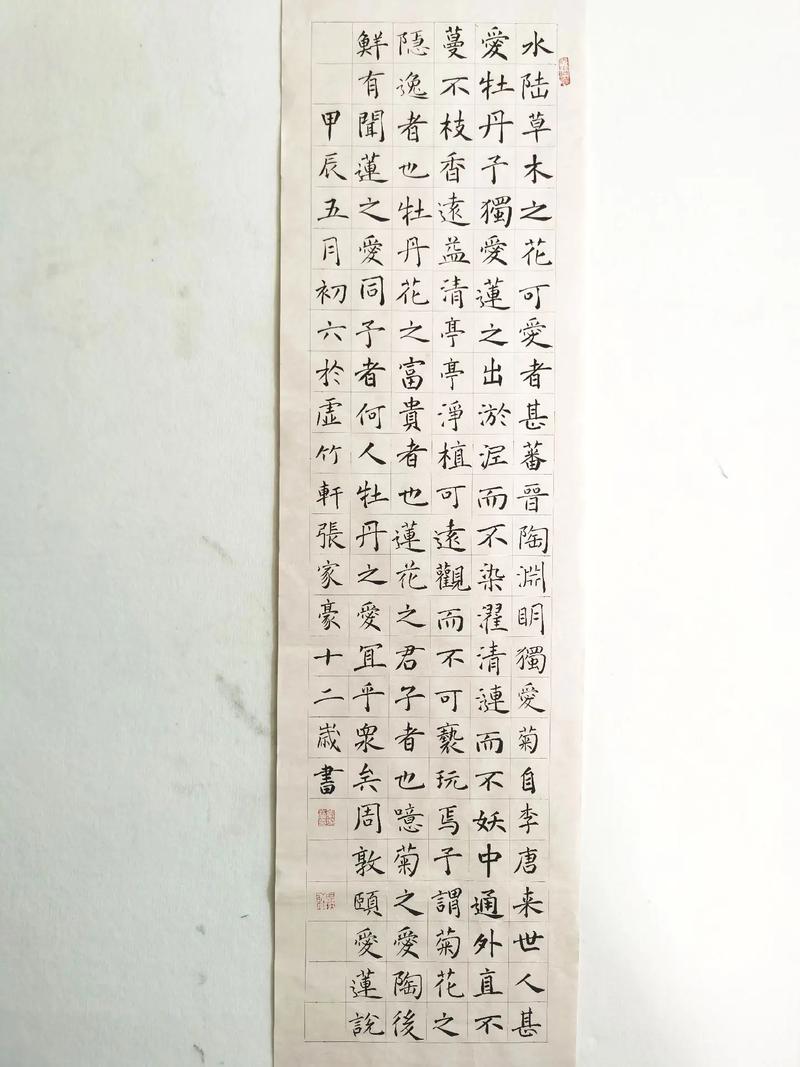 水陆草木之花可愛者甚蕃晉陶淵明獨愛菊自李唐来世人甚
愛牡丹予獨愛蓮之出淤泥而不染濯清漣而不妖中通外直不
蔓不枝香遠益清亭亭淨植可遠觀而不可褻玩焉予謂菊花之
隐逸者也牡丹花之富貴者也蓮花之君子者也噫菊之愛陶後
鮮有聞蓮之愛同予者何人牡丹之愛宜乎衆矣周敦頤愛蓮說
甲辰五月初六於虛竹軒張家豪十二歲書